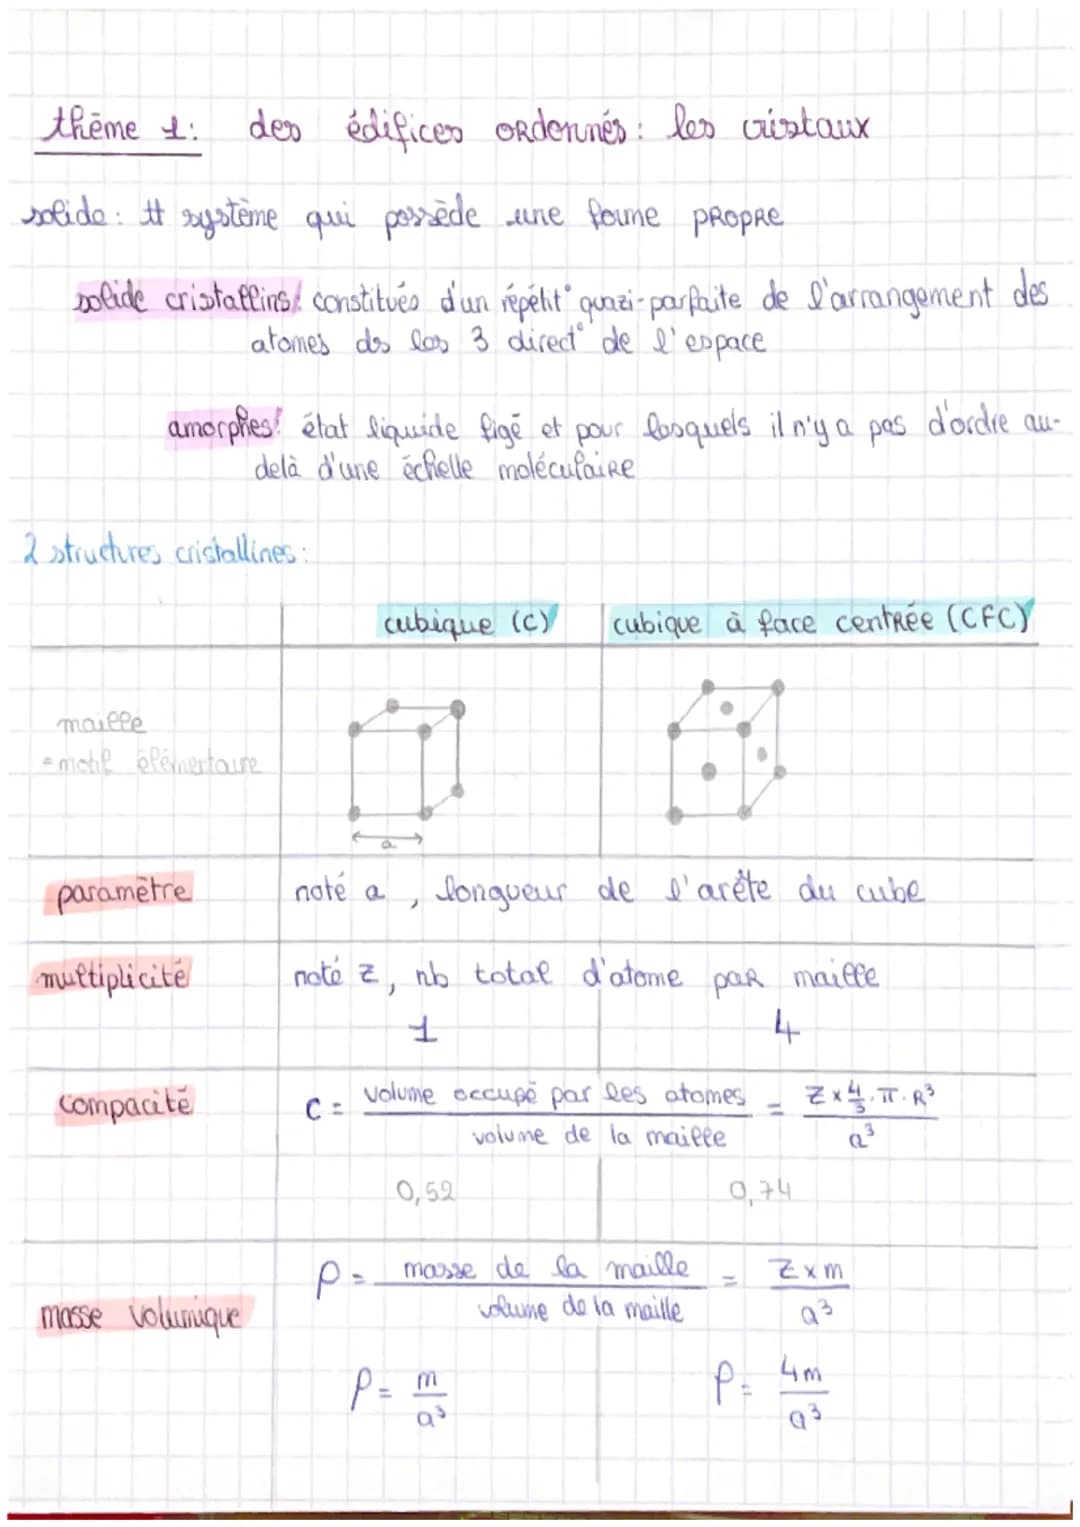 thème 1: des édifices ordonnés: les cristaux
solide: # système qui possède une forme PROPRE
solide cristallins: constitués d'un répétit° quazi-parfaite de l'arrangement des
atomes ds les 3 direct° de l'espace
amorphes: état liquide figé et pour lesquels il n'y a pas d'ordre au-
delà d'une échelle moléculaire
2 structures cristallines:
cubique (C) cubique à face centrée (CFC)
maille
= motif élémentaire
a
paramètre noté a, longueur de l'arête du cube
multiplicité noté z, nb total d'atome par maille
1 4
compacité C = volume occupé par les atomes / volume de la maille = Z × 4/3 . π . R³ / a³
0,52 0,74
masse volumique ρ = masse de la maille / volume de la maille = Z × m / a³
ρ = m / a³ ρ = 4m / a³